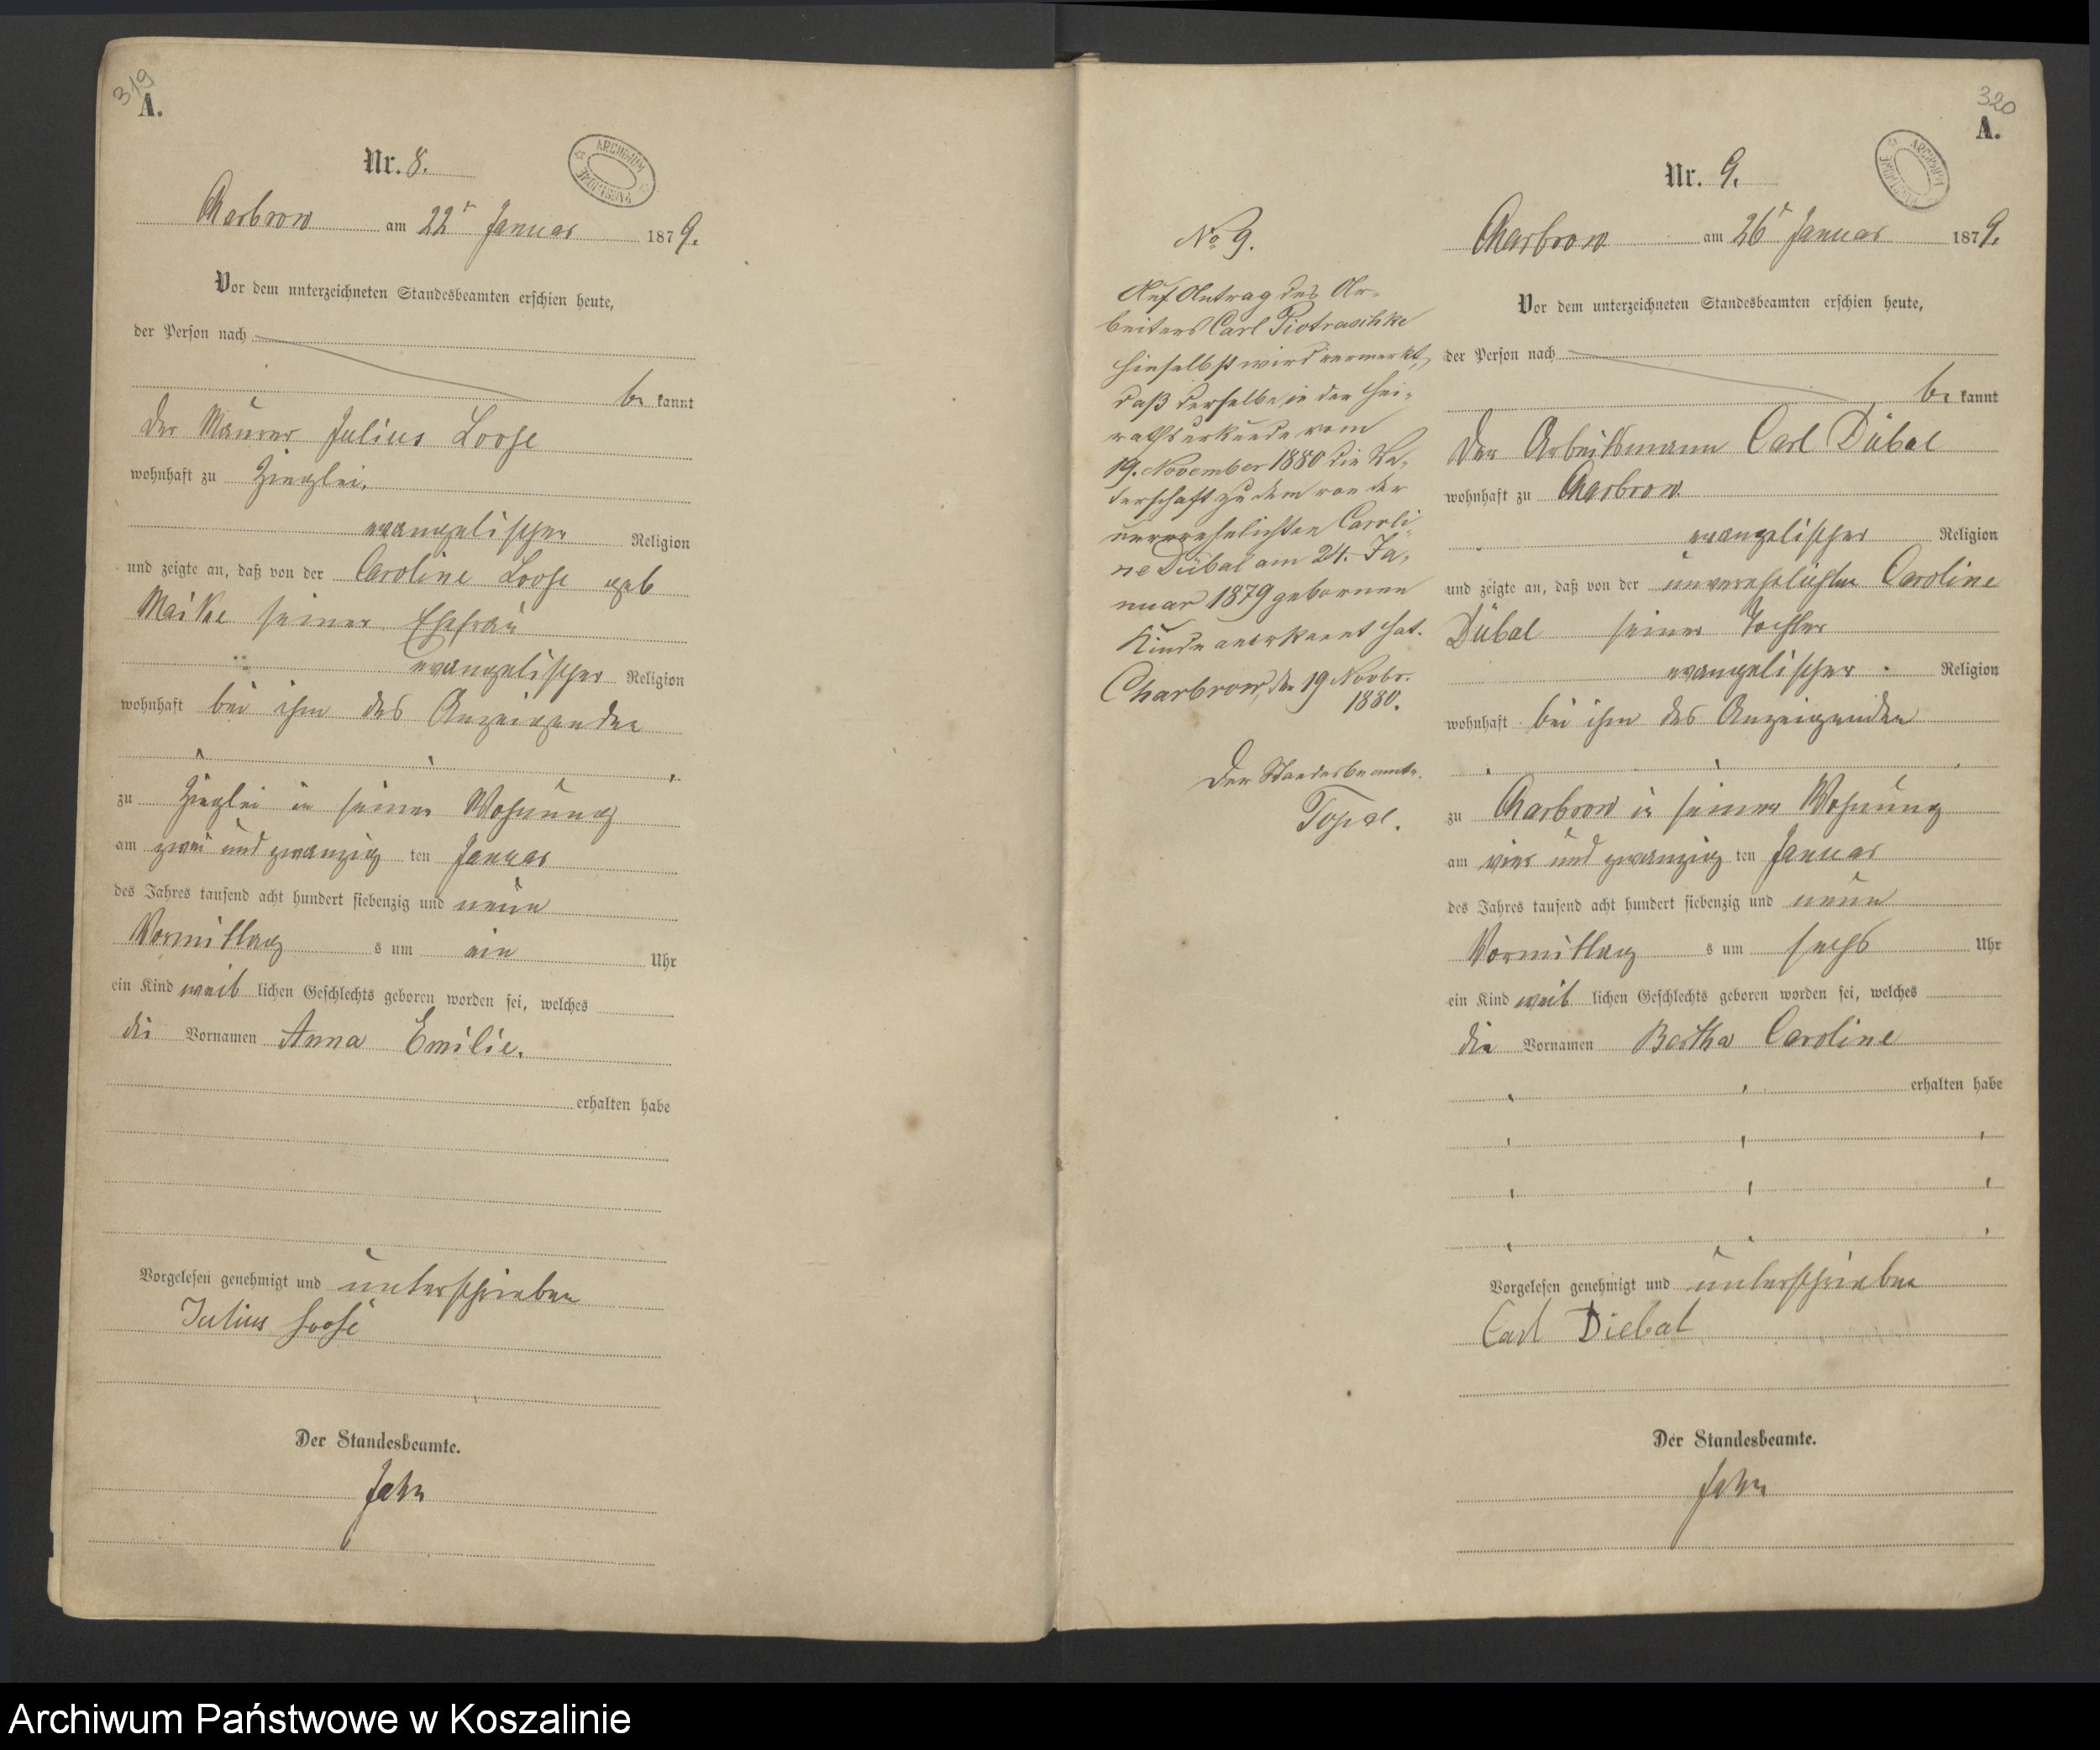 319
A.
Nr. 8.
ARCHIWUM PAŃSTWOWE
Charbrow am 22t Januar 1879.
Vor dem unterzeichneten Standesbeamten erschien heute,
der Person nach
be kannt
der Maurer Julius Loose
wohnhaft zu Zieglei.
evangelischer Religion
und zeigte an, daß von der Caroline Loose geb
Maike seiner Ehefrau
evangelischer Religion
wohnhaft bei ihm des Anzeigenden
zu Zieglei in seiner Wohnung
am zwei und zwanzig ten Januar
des Jahres tausend acht hundert siebenzig und neun
Vormittag s um ein Uhr
ein Kind weib lichen Geschlechts geboren worden sei, welches
die Vornamen Anna Emilie.
erhalten habe
Vorgelesen genehmigt und unterschrieben
Julius Loose
Der Standesbeamte.
Jahn
320
A.
Nr. 9.
ARCHIWUM PAŃSTWOWE
No 9.
Auf Antrag des Ar-
beiters Carl Piotraschke
hieselbst wird vermerkt,
daß derselbe in der Hei-
rathsurkunde vom
19. November 1880 die Va-
terschaft zu dem von der
unverehelichten Caroli-
ne Dübal am 24. Ja-
nuar 1879 gebornen
Kinde anerkannt hat.
Charbrow, den 19 Novbr.
1880.
Der Standesbeamte.
Topel.
Charbrow am 26t Januar 1879.
Vor dem unterzeichneten Standesbeamten erschien heute,
der Person nach
be kannt
der Arbeitsmann Carl Dübal
wohnhaft zu Charbrow
evangelischer Religion
und zeigte an, daß von der unverehelichten Caroline
Dübal seiner Tochter
evangelischer Religion
wohnhaft bei ihm des Anzeigenden
zu Charbrow in seiner Wohnung
am vier und zwanzig ten Januar
des Jahres tausend acht hundert siebenzig und neun
Vormittag s um sechs Uhr
ein Kind weib lichen Geschlechts geboren worden sei, welches
die Vornamen Bertha Caroline
erhalten habe
Vorgelesen genehmigt und unterschrieben
Carl Diebal
Der Standesbeamte.
Jahn
Archiwum Państwowe w Koszalinie